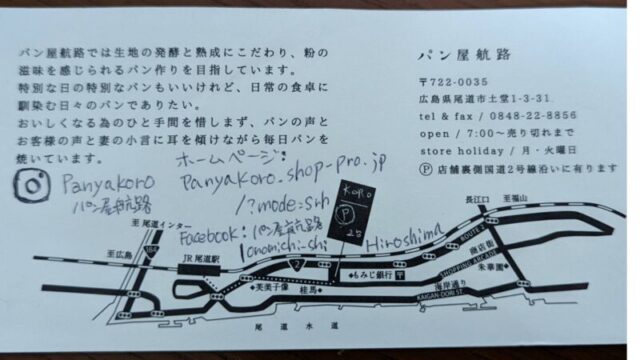 パン屋航路では生地の発酵と熟成にこだわり、粉の
滋味を感じられるパン作りを目指しています。
特別な日の特別なパンもいいけれど、日常の食卓に
馴染む日々のパンでありたい。
おいしくなる為のひと手間を惜しまず、パンの声と
お客様の声と妻の小言に耳を傾けながら毎日パンを
焼いています。
ホームページ:
Panyakoro.shop-pro.jp
/?mode=srh
Panyakoro
パン屋航路
Facebook: パン屋航路
onomichi-shi
Hiroshima
パン屋航路
〒722-0035
広島県尾道市土堂1-3-31
tel & fax / 0848-22-8856
open / 7:00〜売り切れまで
store holiday / 月・火曜日
Ⓟ 店舗裏側国道2号線沿いに有ります
至尾道インター
至広島
JR尾道駅
KORO
Ⓟ
2
長江口
至福山
ROUTE 2
商店街
SHOPPING ARCADE
朱華園
海岸通り
KAIGAN-DORI ST
もみじ銀行
芙美子像
桂馬
尾道水道